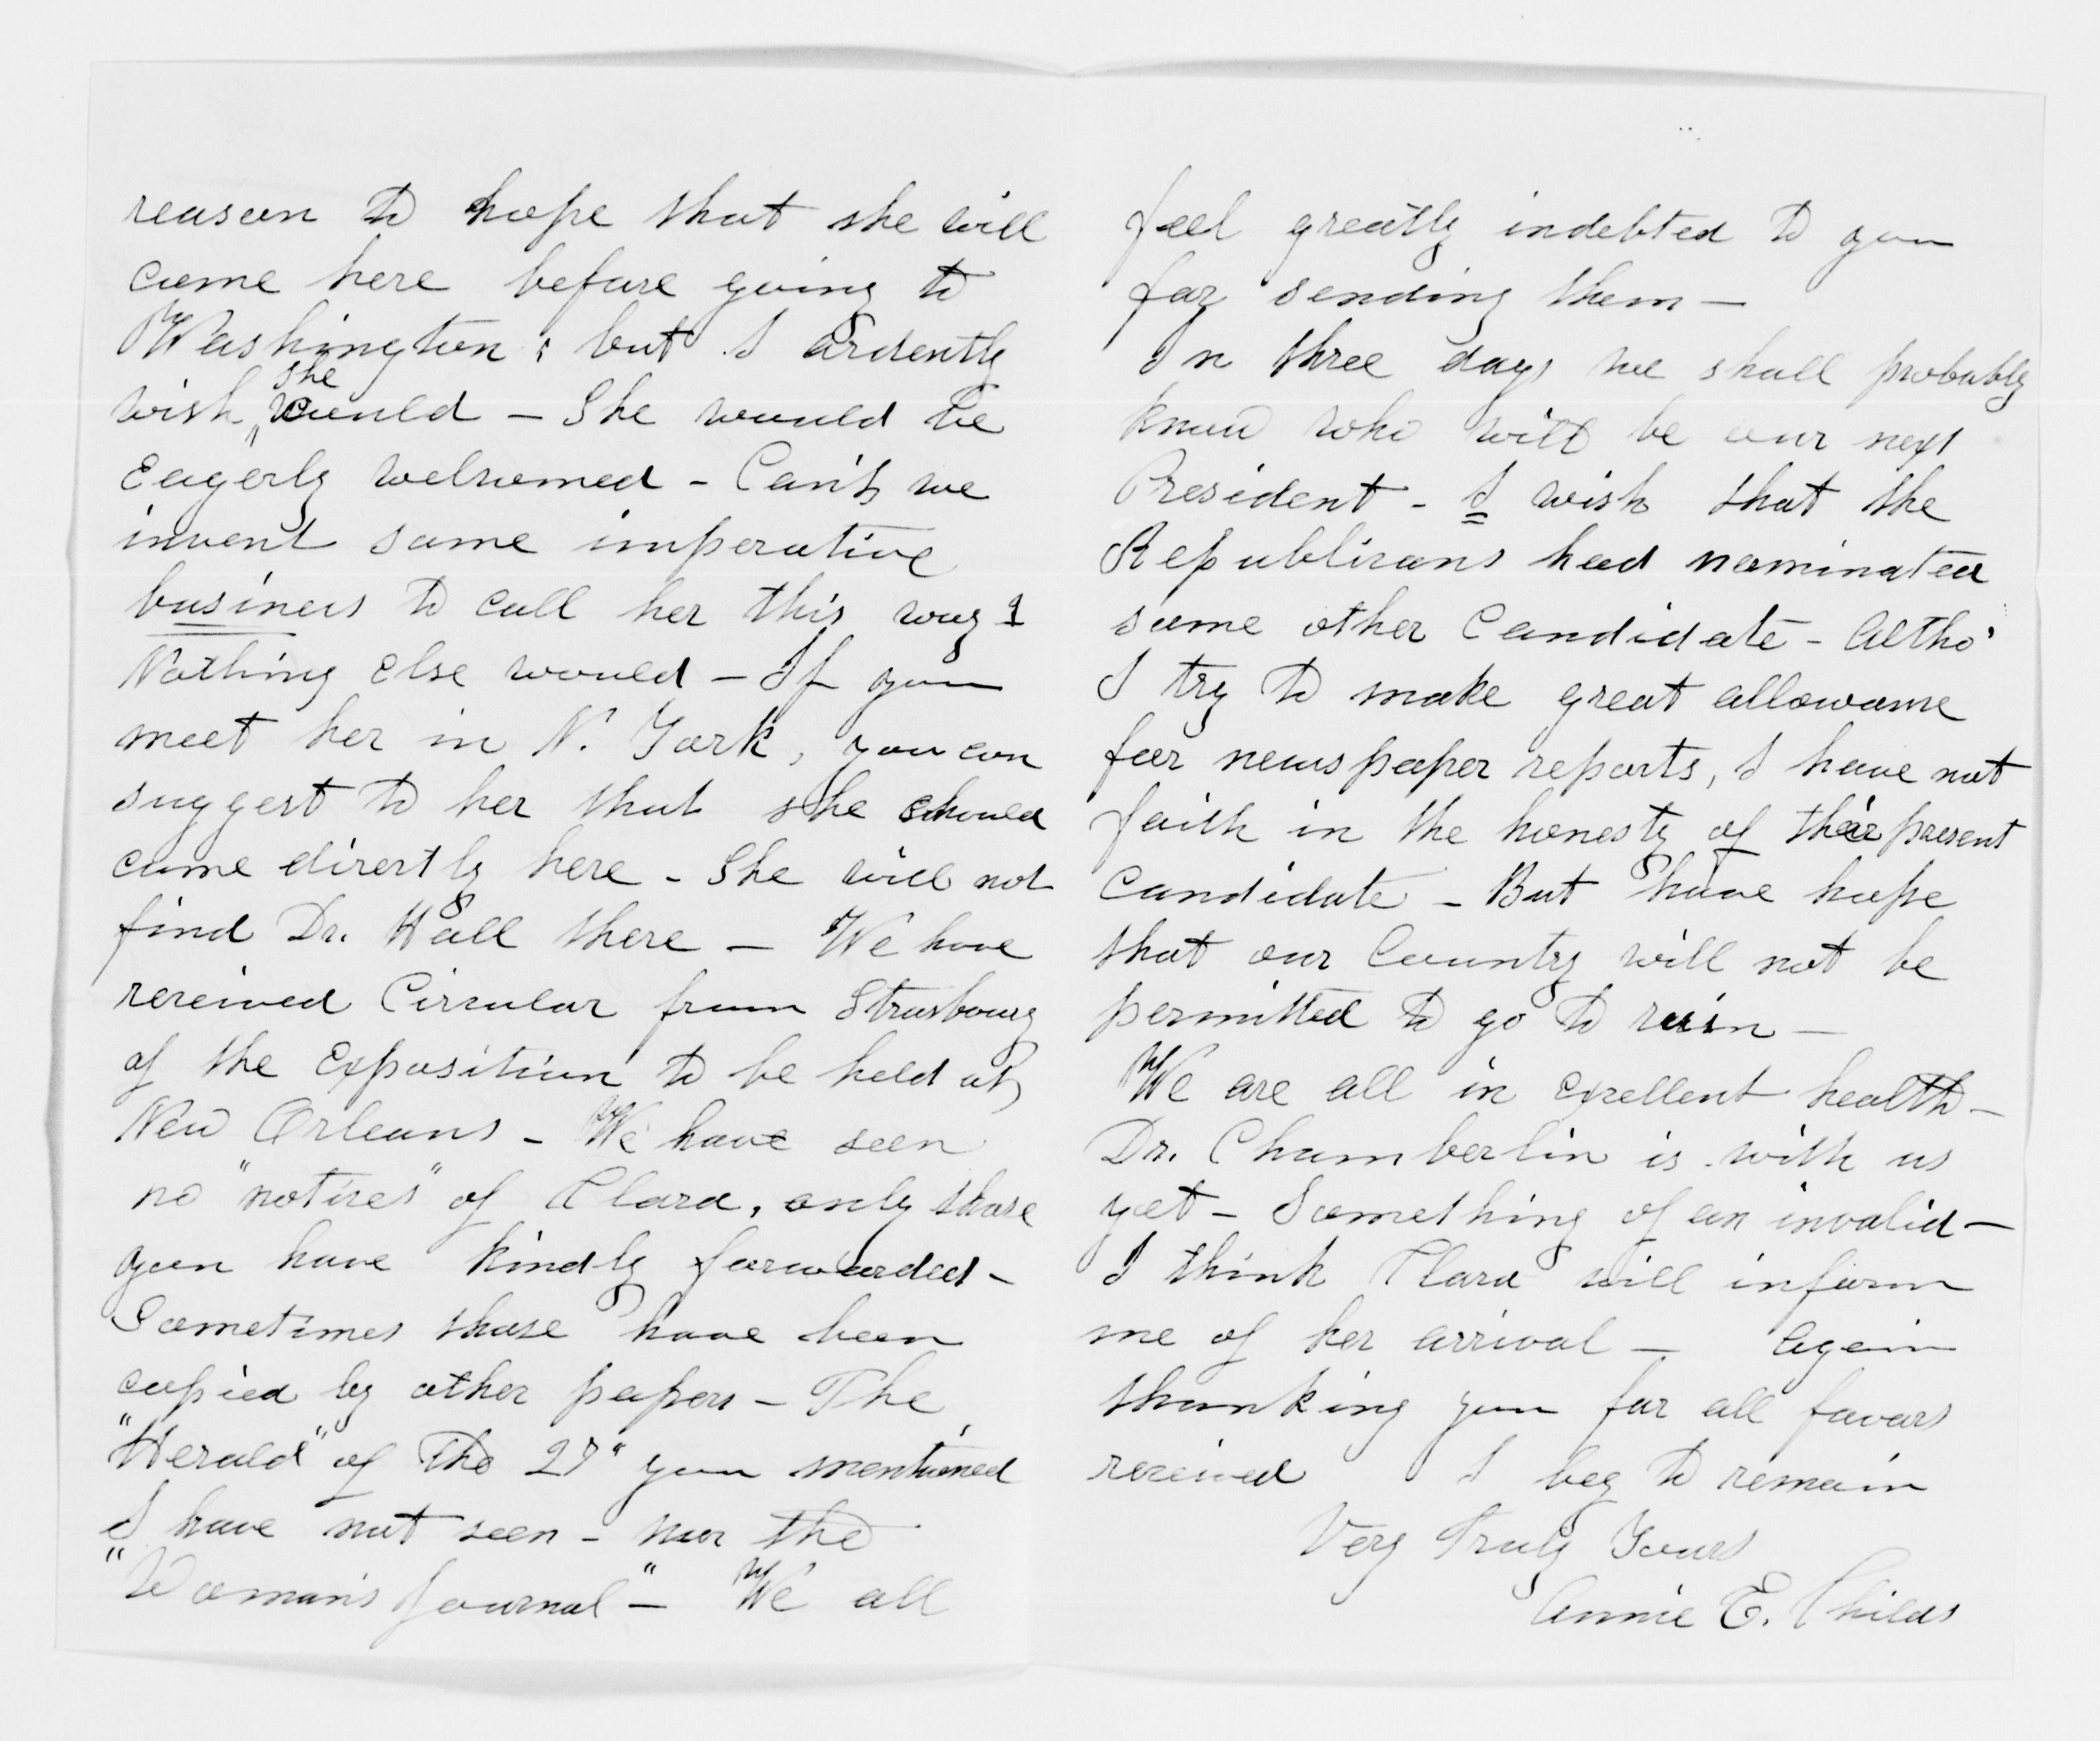 reason to hope that she will
come here before going to
Washington; but I ardently
she
wish would — She would be
Eagerly welcomed - Can't we
invent some imperative
business to call her this way?
Nothing else would — If you
meet her in N. York, you can
suggest to her that she should
come directly here - She will not
find Dr. Hall there — We have
received Circular from Strasbourg
of the Exposition to be held at
New Orleans - We have seen
no "notices" of Clara, only those
you have kindly forwarded -
Sometimes those have been
copied by other papers - The
"Herald" of the 27" you mentioned
I have not seen - nor the
"Woman's Journal" — We all
feel greatly indebted to you
for sending them —
In three days we shall probably
know who will be our next
President - I wish that the
Republicans had nominated
some other Candidate - altho'
I try to make great allowance
for newspaper reports, I have not
faith in the honesty of their present
Candidate - But have hope
that our Country will not be
permitted to go to ruin —
We are all in excellent health -
Dr. Chamberlin is with us
yet - Something of an invalid -
I think Clara will inform
me of her arrival — Again
thanking you for all favors
received I beg to remain
Very Truly Yours
Annie E. Childs